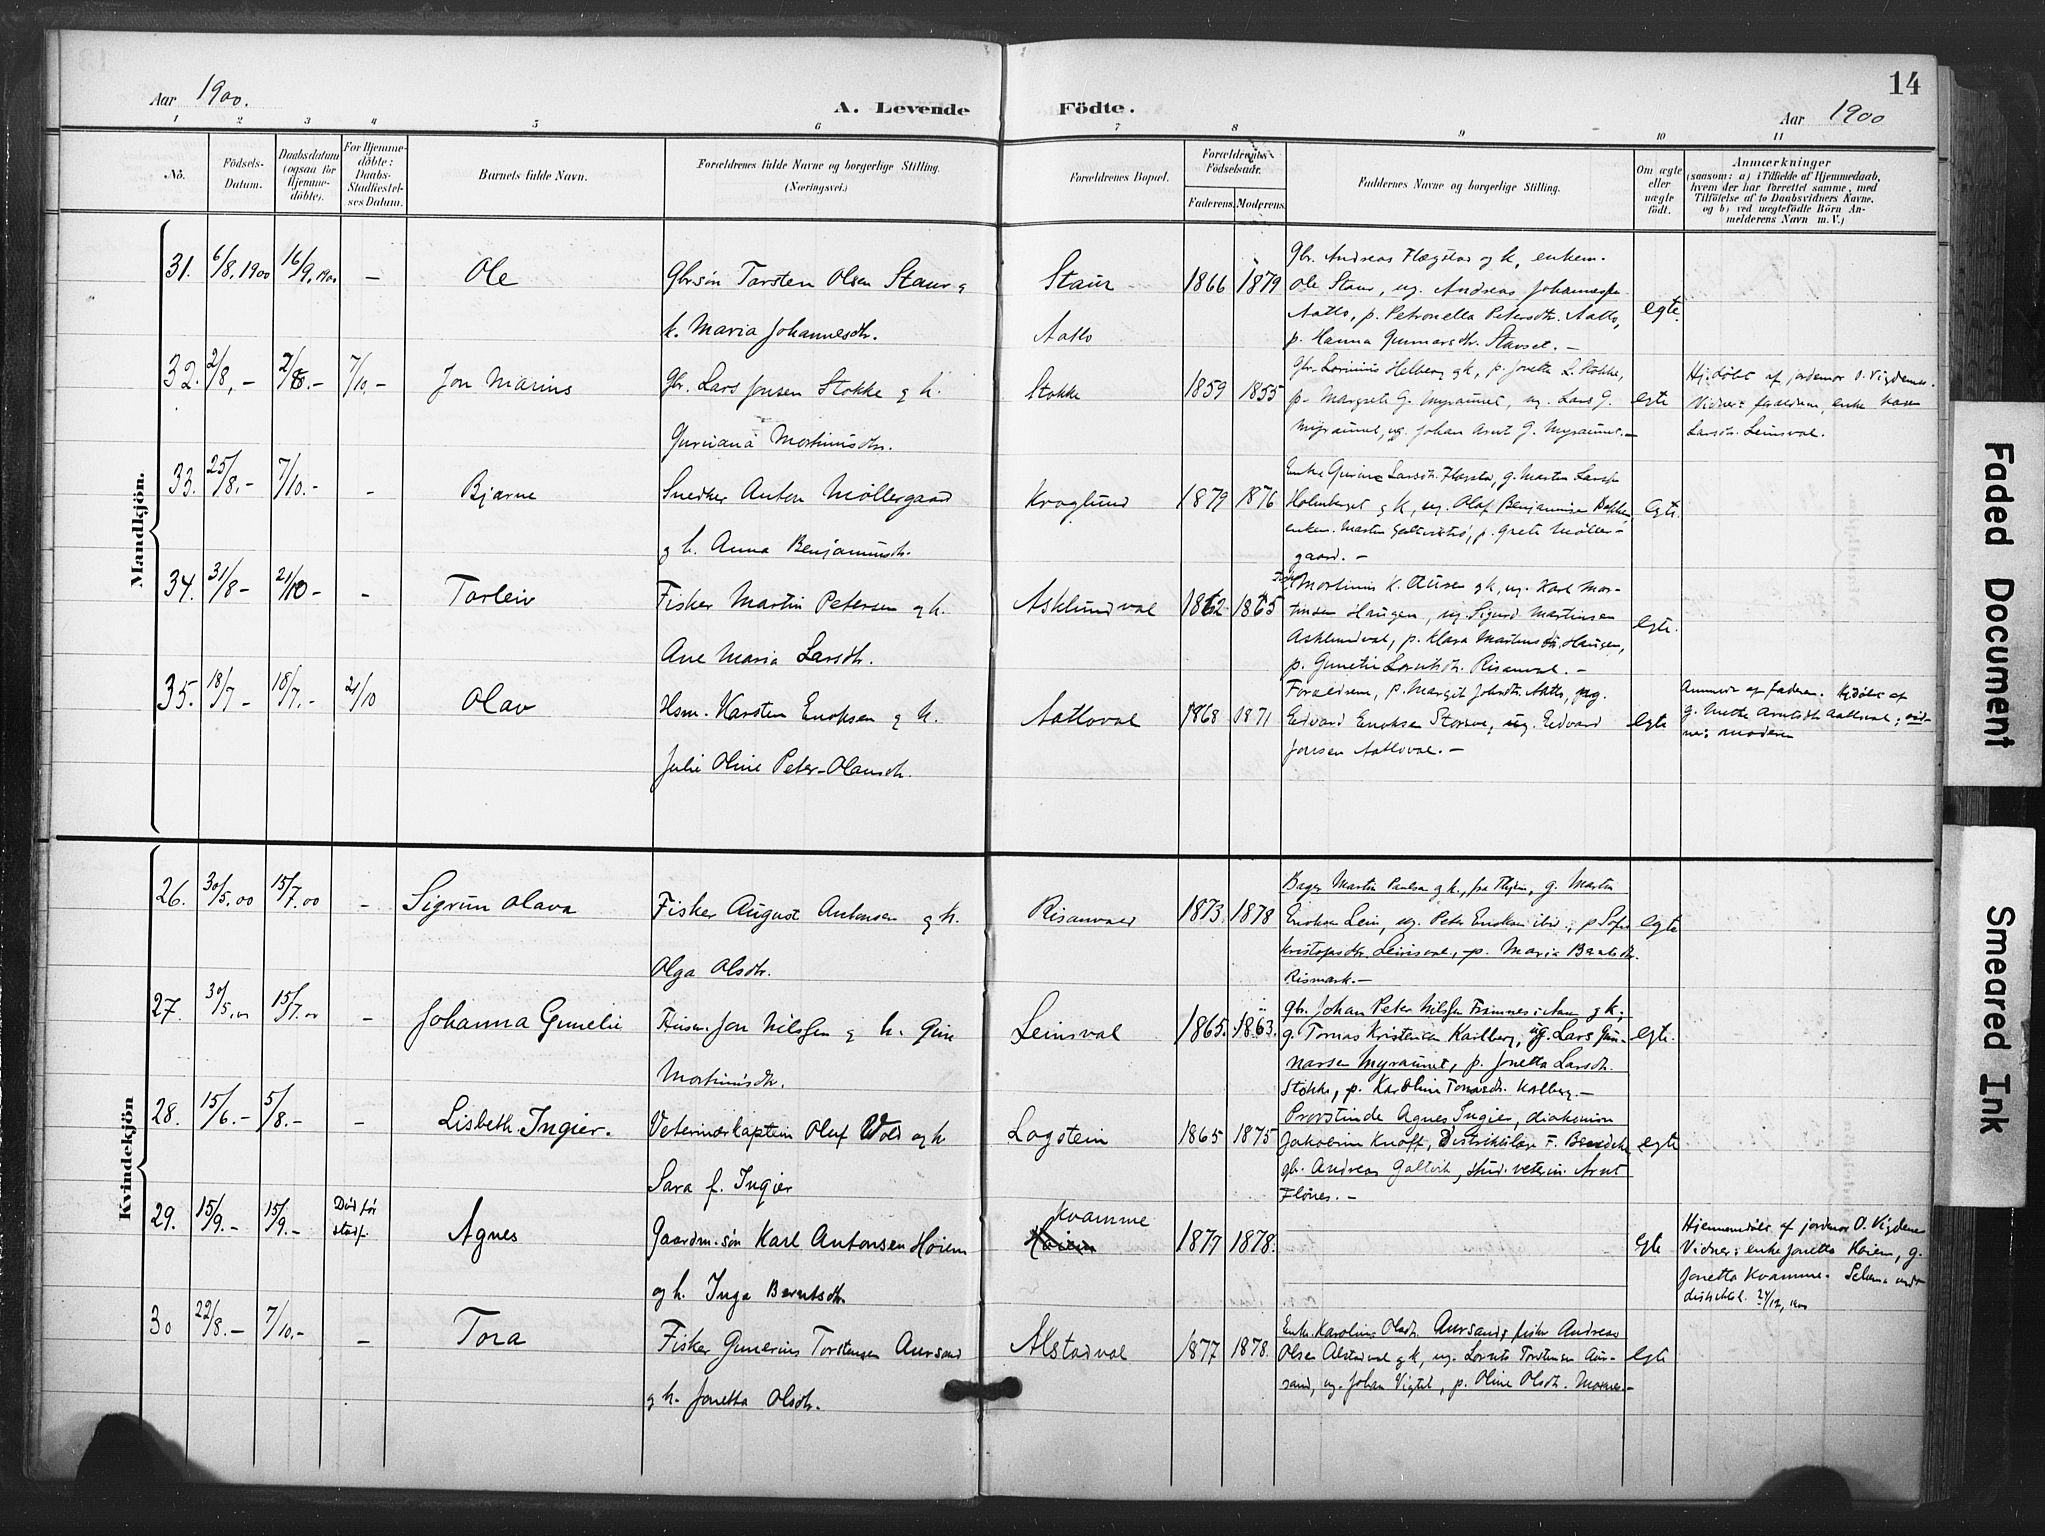 14
Aar 1900.
A. Levende Födte.
Aar 1900
1 2 3 4 5 6 7 8 9 10 11
No.
Födsels-
Datum.
Daabsdatum
(ogsaa för
Hjemme-
döbte).
For Hjemme-
döbte:
Daabs-
Stadfæstel-
ses Datum.
Barnets fulde Navn.
Forældrenes fulde Navne og borgerlige Stilling.
(Næringsvei.)
Forældrenes Bopæl.
Forældrenes
Födselsaar.
Faderens. Moderens.
Faddernes Navne og borgerlige Stilling.
Om ægte
eller
uægte
födt.
Anmærkninger
(saasom: a) i Tilfælde af Hjemmedaab,
hvem der har forrettet samme, med
Tilföielse af to Daabsvidners Navne.
og b) ved uægtefödte Börn An-
melderens Navn m. V.)
Mandkjön.
31. 6/8.1900 16/9.1900 – Ole
Gbrsøn Torsten Olsen Staur og
h. Maria Johannesdtr.
Staur
Aatlo
1866 1879
gbr. Andreas Flægstad og k, enkem.
Ole Staur, ug. Andreas Johannessen
Aatlo, p. Petronella Petersdtr. Aatlo,
p. Hanna Gunnarsdtr. Stavset. –
egte.
32. 2/8,– 7/10.– Jon Marius
Gbr. Lars Jonsen Stokke og h.
Mortinusdtr.
Stokke
1859 1855
gbr. Helberg og k, p. Jonetta L. Stokke,
p. Margrete G. Myraunet, ug. Lars G.
Myraunet, ug. Johan Arnt G. Myraunet. –
egte
Hj.døbt af jordemor O. Vigdenes.
Vidner: forældrene, enke
Larsdtr. Leinsval.
33. 25/8.– 7/10.– – Bjarne
Snedker Anton Møllergaard
og h. Anna Benjaminsdtr.
Kroglund
1879 1876
Enke Larsdtr. g. Martin Larssen
Holmberget og k, ug. Olaf Benjaminsen Bakken,
enkem. Martin p. Grete Møller-
gaard. –
Egte.
34. 31/8– 21/10– – Torleiv
Fisker Martin Petersen og h.
Ane Maria Larsdtr.
Asklundval
1862 1865
Mortinus K. Ausen og k, ug. Karl Mor-
tinsen Haugen, ug. Sigurd Martinsen
Asklundval, p. Klara Martinsdtr. Haugen,
p. Lorntsdtr. Risanval. –
egte.
35. 18/7– 18/7.– 21/10 Olav
Hsm. Karsten Enoksen og h.
Julie Oline Peter-Olausdtr.
Aatloval
1868 1871
Forældrene, p. Margit Johnsdtr. Aatlo, ug.
Edvard Enoksen ug. Edvard
Jonsen Aatloval. –
egte
Anmeldt af faderen. Hjdøbt af
g. Mette Arntsdtr. Aatloval; vid-
ne: moderen
Kvindekjön
26. 30/5.00 15/7.00 – Sigrun Olava
Fisker August Antonsen og h.
Olga Olsdtr.
Risanvald
1873. 1878
Bager Martin Paulsen og k., fra Thjem, g. Martin
Eriksen Lein, ug. Peter Eriksen ibid.; p. Sofie
Kristofersdtr. Leinsval, p. Maria Berntsdtr.
Rismark. –
egte
27. 30/5.00 15/7.00 – Johanna Gunelie
Husm. Jon Nilssen og h.
Mortinusdtr.
Leinsval
1865. 1863.
gbr. Johan Peter Nilssen og k,
g. Tomas Kristensen Karlberg, ug. Lars Gun-
narsen Myraunet, p. Jonetta Larsdtr.
Stokke, p. Karoline Tomasdtr. Kalberg. –
egte.
28. 15/6.– 5/8.– – Lisbeth Ingier.
Veterinærkaptein Oluf Wold og h
Sara f. Ingier
Logstein
1865 1875
Provstinde Agnes Ingier, diakonisse
Jakobine Knoff, Distriktslæge F.
gbr. Andreas Galtvik, stud. veterin. Arnt
Flönes. –
egte
29. 15/9.– 15/9.– Död før
stadf. Agnes
Gaardm.søn Karl Antonsen Høiem
og h. Inga Berntsdtr.
Kvamme
1877 1878.
Egte
Hjemmedøbt af jordemor O. Vigdenes
Vidner: enke Jonetta Høiem, g.
Jonetta Kvamme.
24/12, 1900
30 22/8.– 7/10.– – Tora
Fisker Gunerius Torstensen Aursand
og h. Jonetta Olsdtr.
Alstadval
1877 1878.
Enke Karoline Olsdtr. Aursand, fisker Andreas
Olsen Alstadval og k, ug. Lornts Torstensen Aur-
sand, ug. Johan Vigtil, p. Oline Olsdtr.
Egte
Faded Document
Smeared Ink